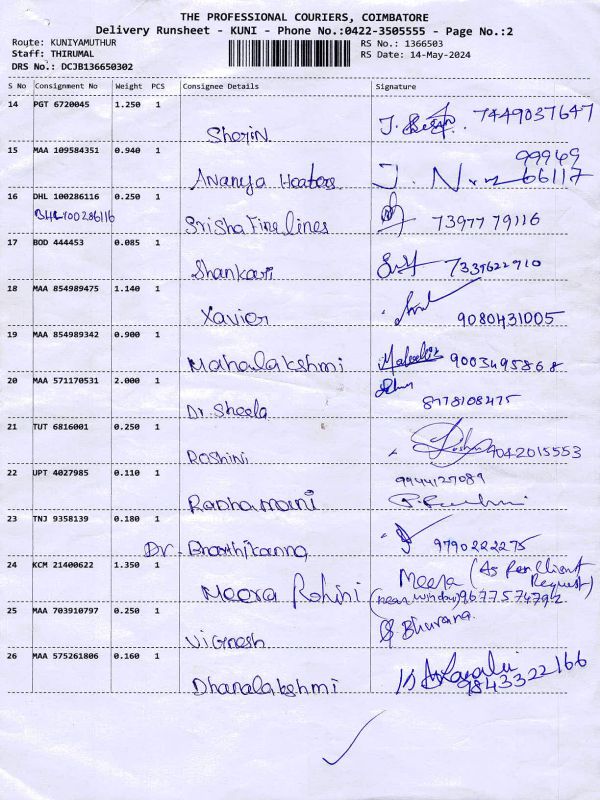 THE PROFESSIONAL COURIERS, COIMBATORE
Delivery Runsheet - KUNI - Phone No.:0422-3505555 - Page No.:2
Route: KUNIYAMUTHUR RS No.: 1366503
Staff: THIRUMAL RS Date: 14-May-2024
DRS No.: DCJB136650302
S No Consignment No Weight PCS Consignee Details Signature
14 PGT 6720045 1.250 1
Sherin 7449037647
15 MAA 109584351 0.940 1
Ananya Heaters 99949 66117
16 DHL 100286116 0.250 1
BHL100286116
Srisha Fine lines 73977 79116
17 BOD 444453 0.085 1
Shankari 7339622910
18 MAA 854989475 1.140 1
Xavier 9080431005
19 MAA 854989342 0.900 1
Mahalakshmi 9003495868
20 MAA 571170531 2.000 1
Dr. Sheela 8778108475
21 TUT 6816001 0.250 1
Roshini 9042015553
22 UPT 4027985 0.110 1
9944127089
Radhamani
23 TNJ 9358139 0.180 1
Dr. Bharthikanna 9790222275
24 KCM 21400622 1.350 1
Meera Rohini Meera (As Per Client Request)
(near window) 9677574792
25 MAA 703910797 0.250 1
Bhuvana
Vignesh
26 MAA 575261806 0.160 1
Dhanalakshmi 9843322166